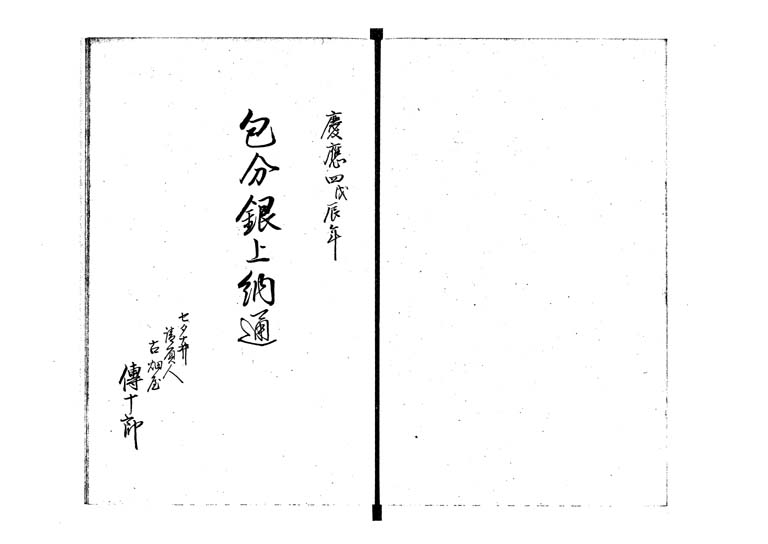 慶應四戊辰年
包分銀上納通
七夕井
請負人
古畑屋
傳十郎